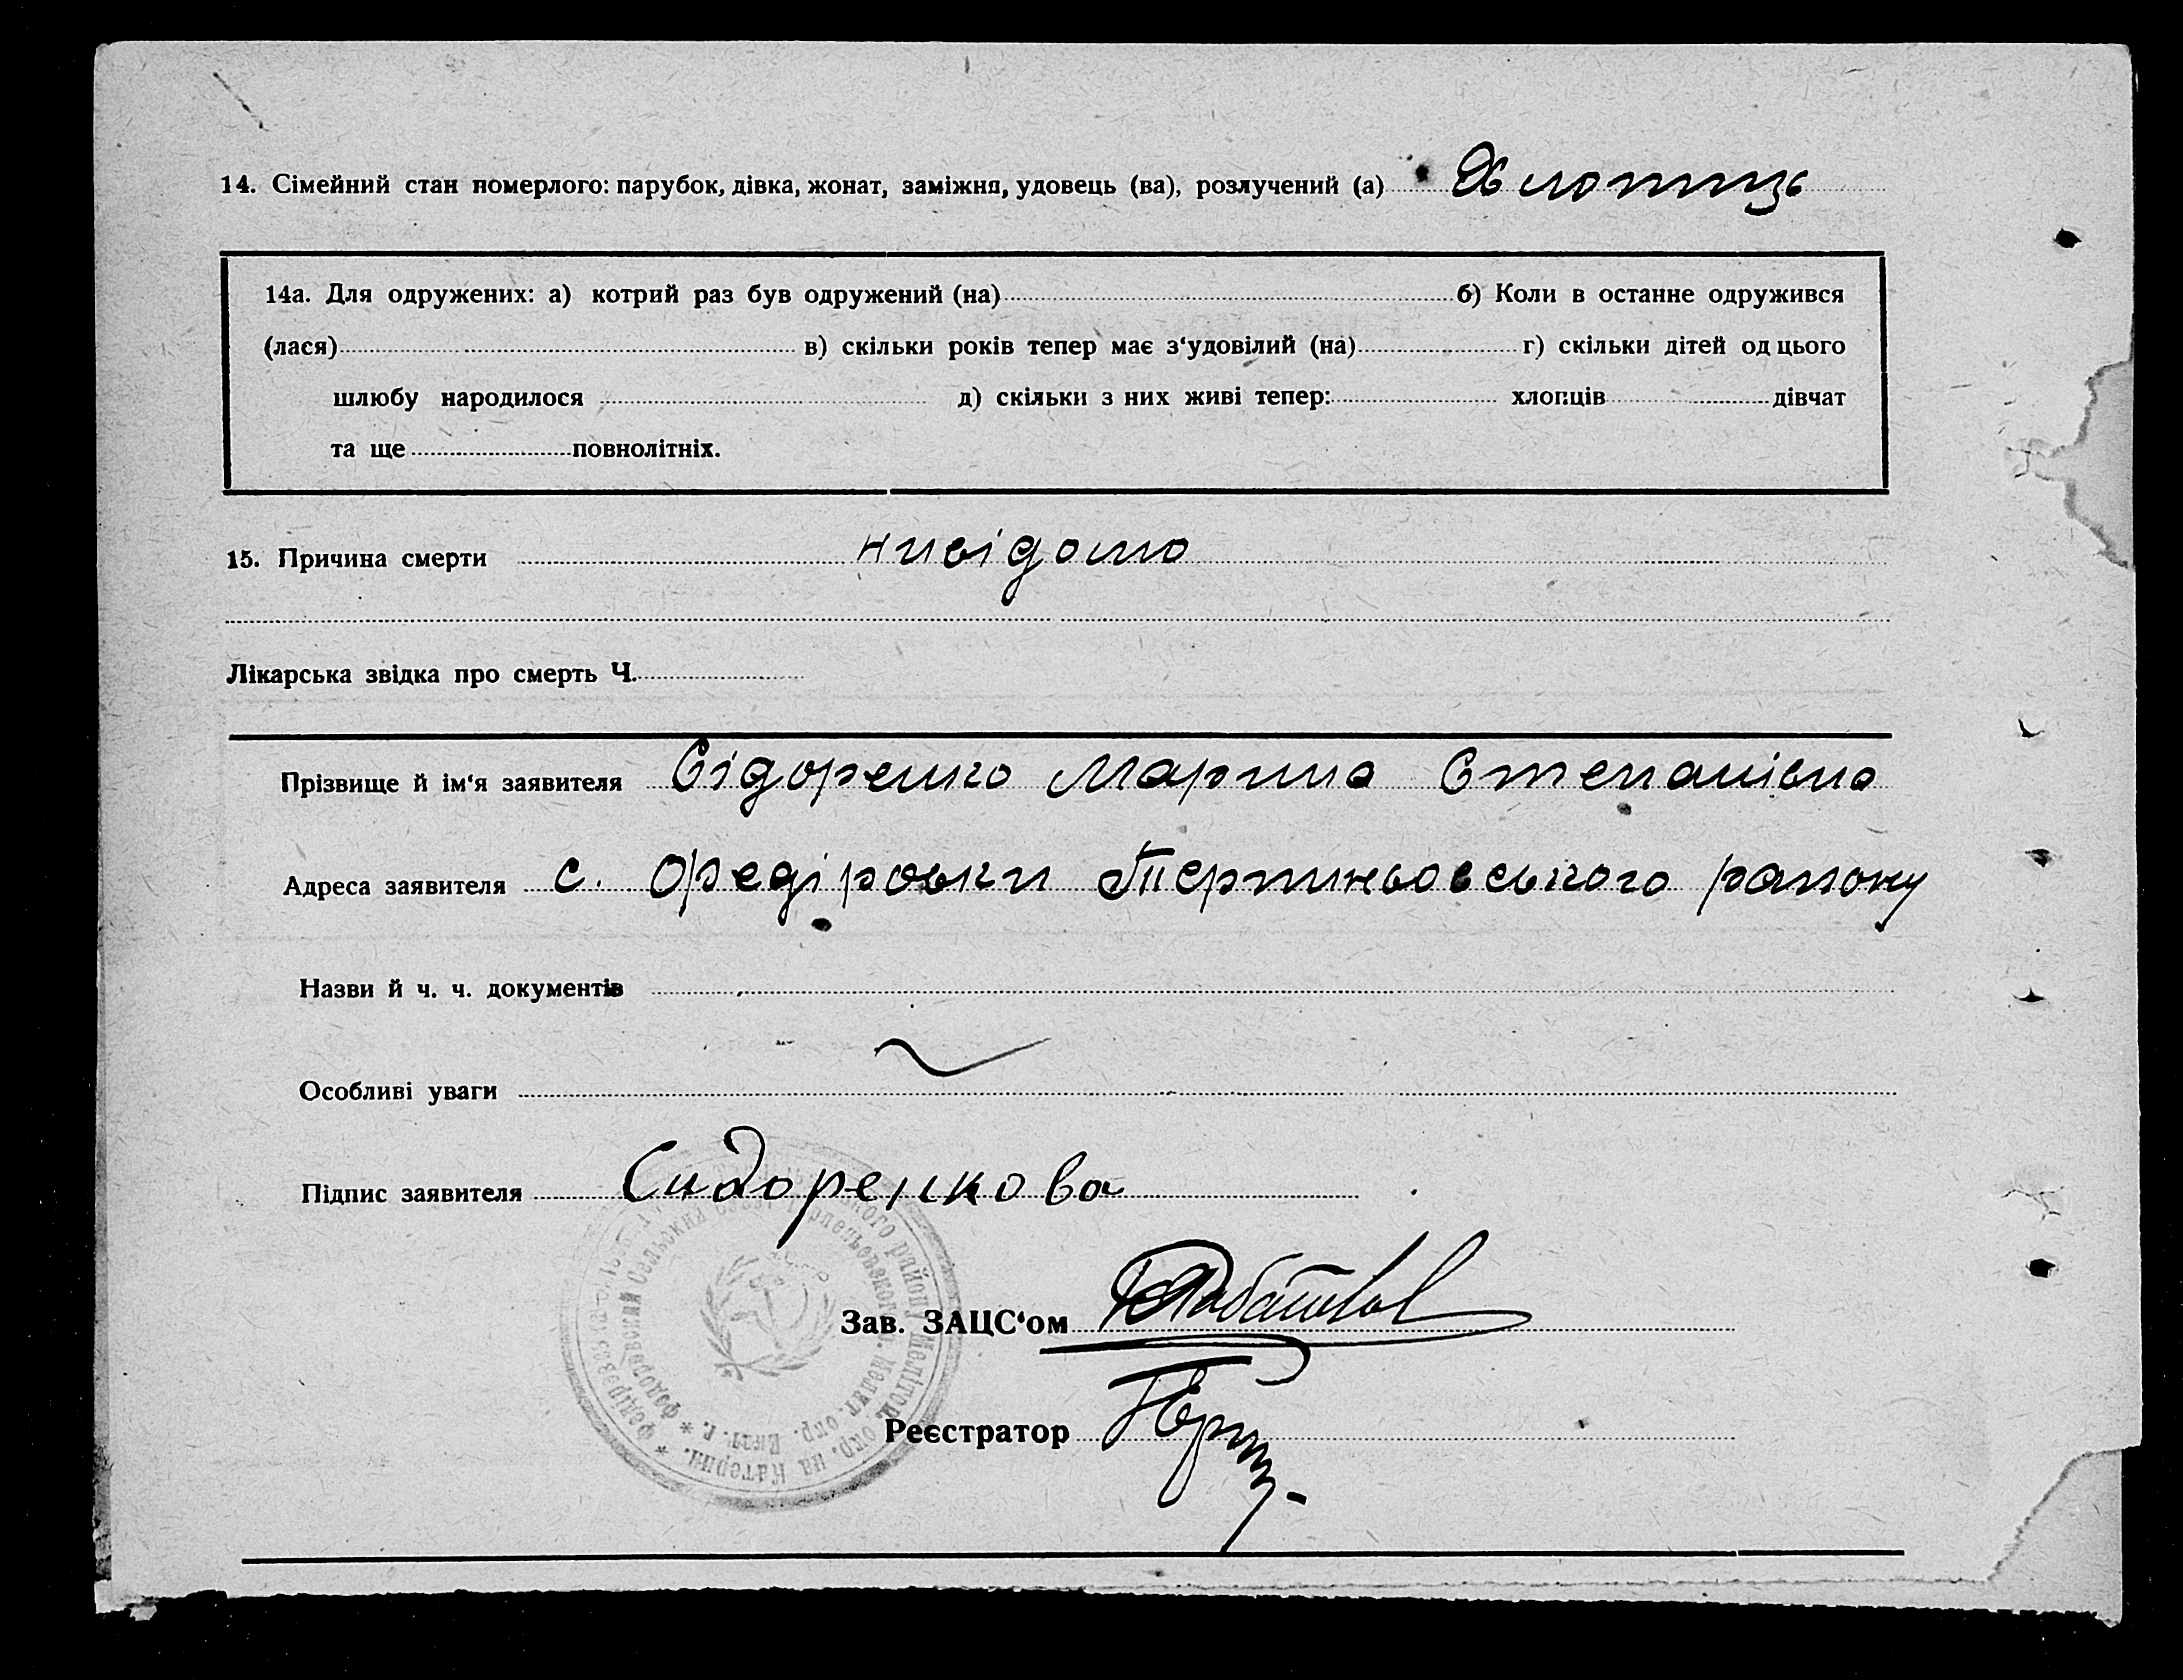 14. Сімейний стан померлого: парубок, дівка, жонат, заміжня, удовець (ва), розлучений (а) Хлоппць
14а. Для одружених: а) котрий раз був одружений (на) б) Коли в останне одружився
(лася) в) скільки років тепер має з‘удовілий (на) г) скільки дітей од цього
шлюбу народилося д) скільки з них живі тепер: хлопців дівчат
та ще повнолітніх.
15. Причина смерти нивідомо
Лікарська звідка про смерть Ч.
Прізвище й ім‘я заявителя Сідоренко Марина Степанівна
Адреса заявителя с. Федіровки Терпиньовського району
Назви й ч. ч. документів
Особливі уваги
Підпис заявителя Сидоренкова
Зав. ЗАЦС‘ом
Реєстратор